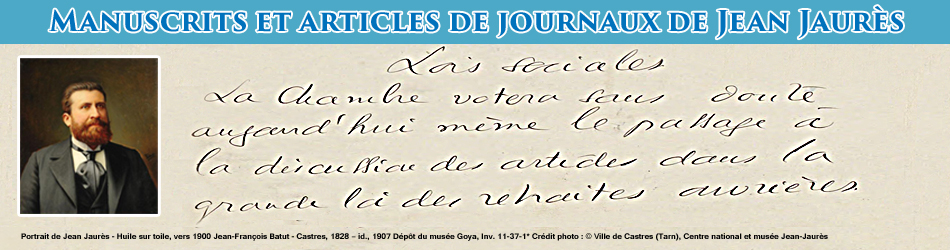 MANUSCRITS ET ARTICLES DE JOURNAUX DE JEAN JAURÈS
Lois sociales
La Chambre votera sans doute
aujourd'hui même le passage à
la discussion des articles dans la
grande loi des retraites ouvrières.
Portrait de Jean Jaurès - Huile sur toile, vers 1900 Jean-François Batut - Castres, 1828 – id., 1907 Dépôt du musée Goya, Inv. 11-37-1* Crédit photo : © Ville de Castres (Tarn), Centre national et musée Jean-Jaurès